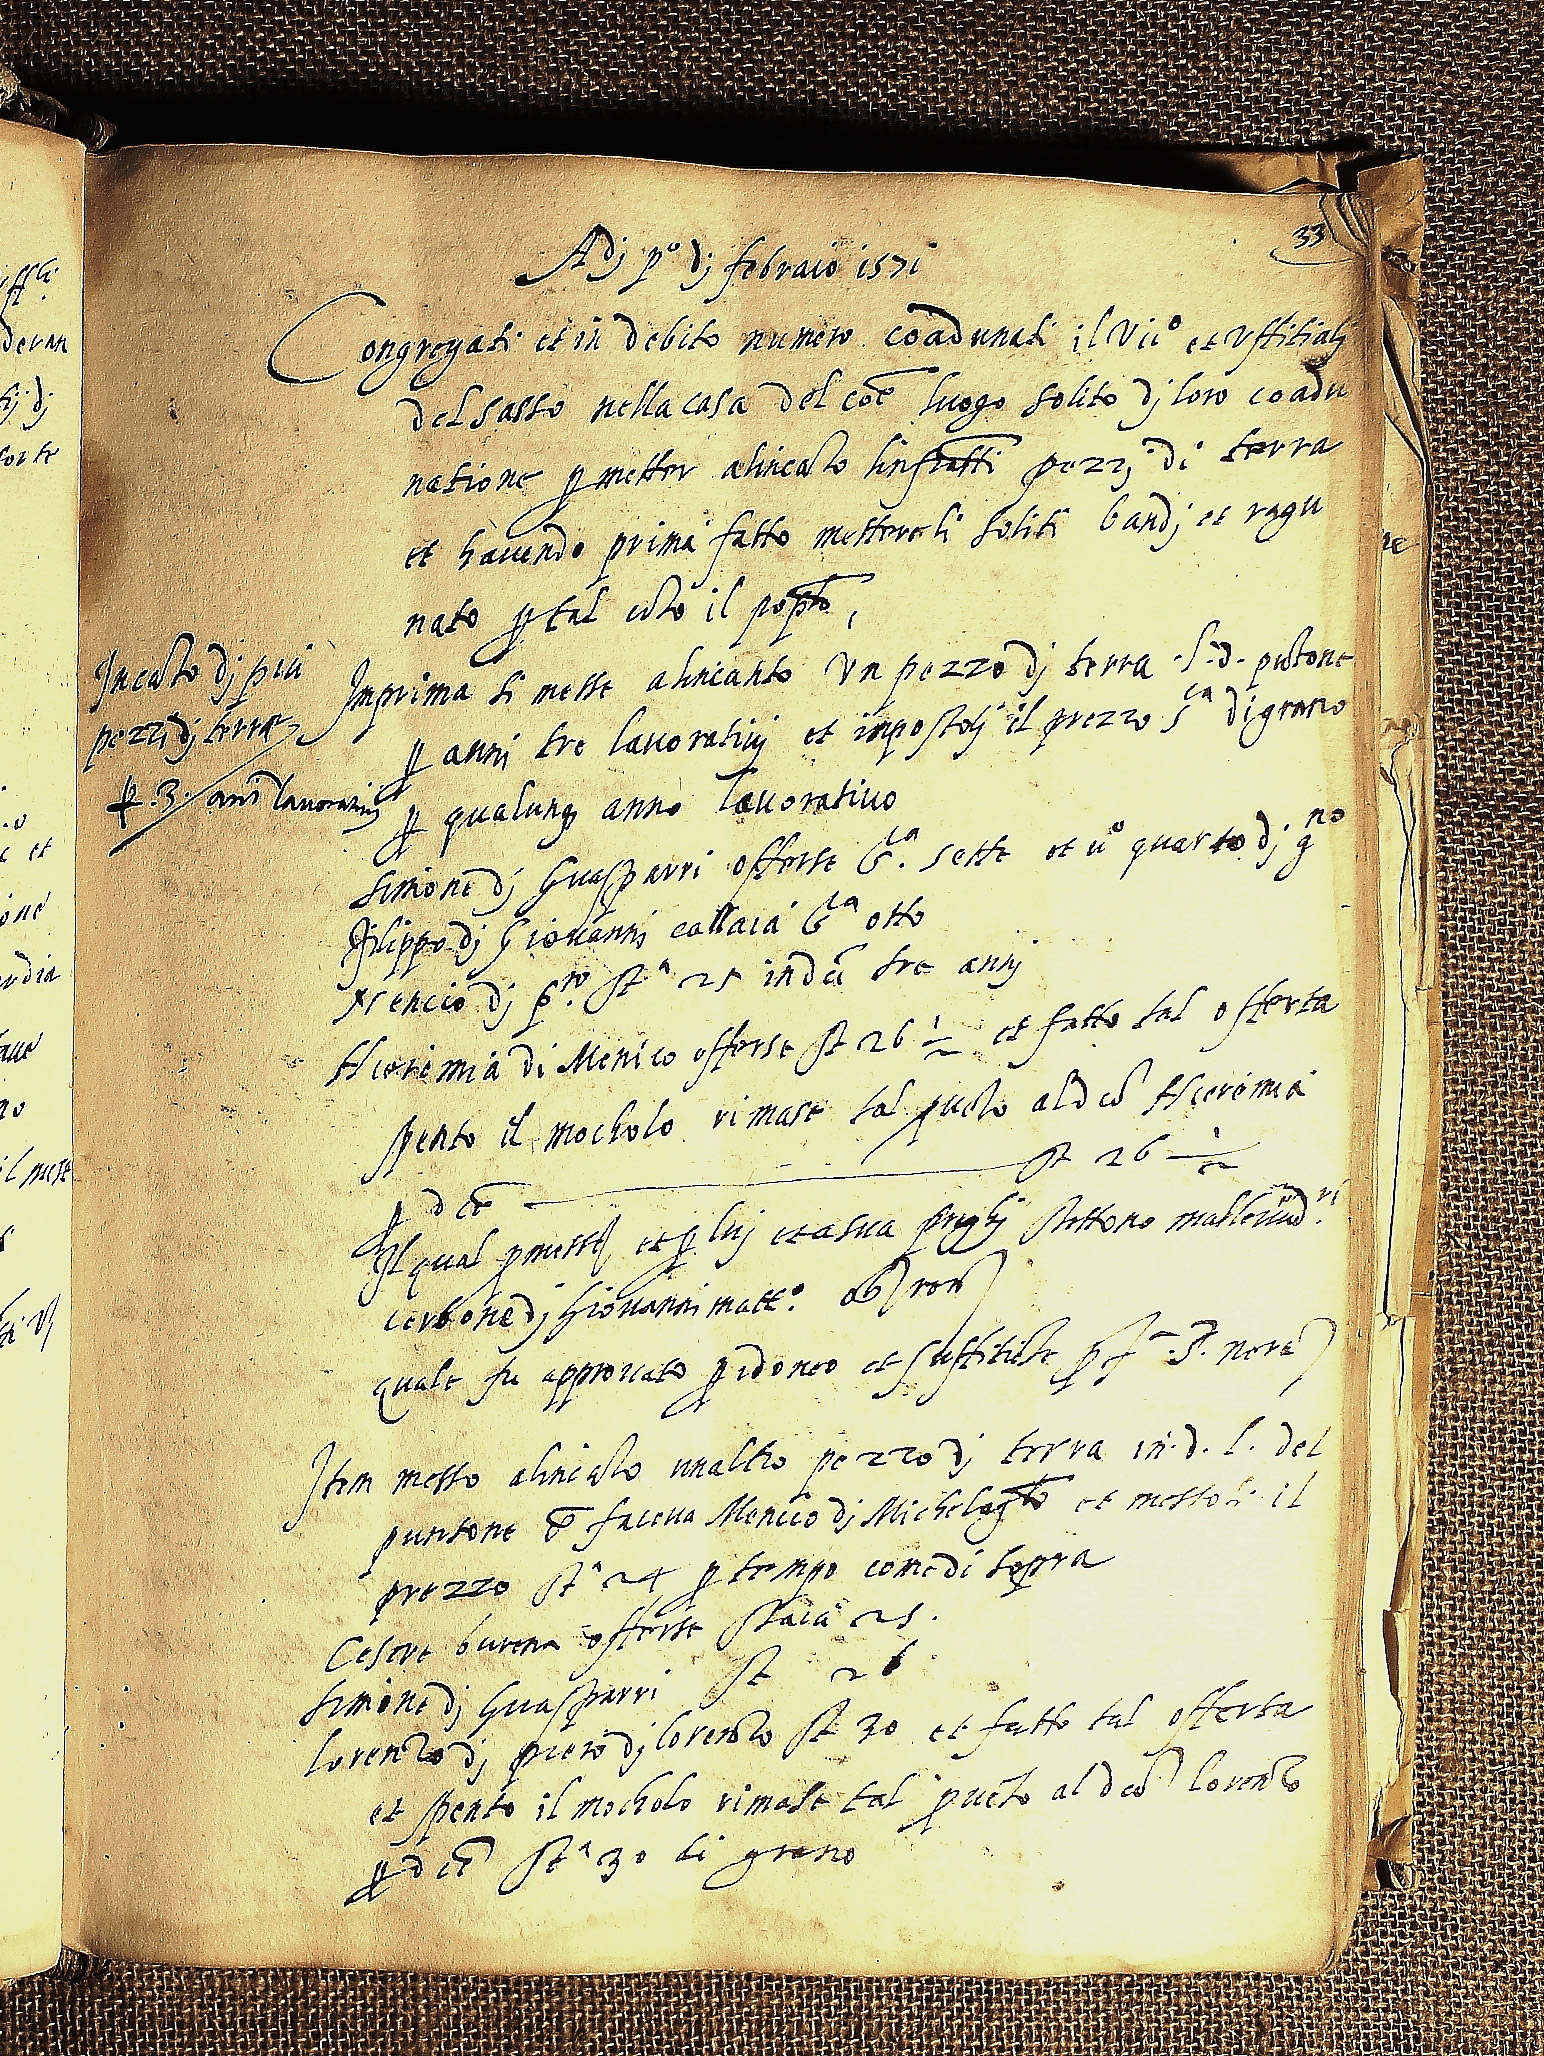 33
Adj p.º dj febraio 1571
Congregati et in debito numero coadunati il Vic.º et Uffitialj
del Sasso nella casa del coe luogo solito dj loro coadu
natione p metter alincato linfratti pezzj di terra
et havendo prima fatto mettere li soliti bandj et ragu
nato p tal coto il popto,
Incato dj piu
pezzi dj terra
p .3. anni lavorativj
Inprima si messe alincanto Un pezzo dj terra .l.d. putone
p anni tre lavorativj et inpostolj il prezzo s.ta di grano
p qualunq anno lavorativo
Simone dj Guasparri offerse s.ta sette et u.º quarto dj g.no
Filippo dj Giovannj callaia s.ta otto
dj p.ro st.a 25 in dcj tre annj
Hieremia di Menico offerse st 26 1/2 et fatto tal offerta
spento il mocholo rimase tal al dco Hieremia
p dce st 26 1/2
Il qual pmesse et p luj et a sua preghj stettono mallevad.ri
cerbone dj Giovannj matt.º
quale fu approvato p idoneo et suffitiete p f.e .3. nere
Item messo alincato unaltro pezzo dj terra in.d. l. del
puntone faceva Menico dj Michelagto et messoli il
prezzo st.a 24 p tempo come di sopra
Cesere burena offerse staia 25.
Simone dj Guasparri st 26
Lorenzo dj piero dj lorenzo st 30 et fatto tal offerta
et spento il mocholo rimase tal al dco Lorenzo
p dcj st.a 30 di grano